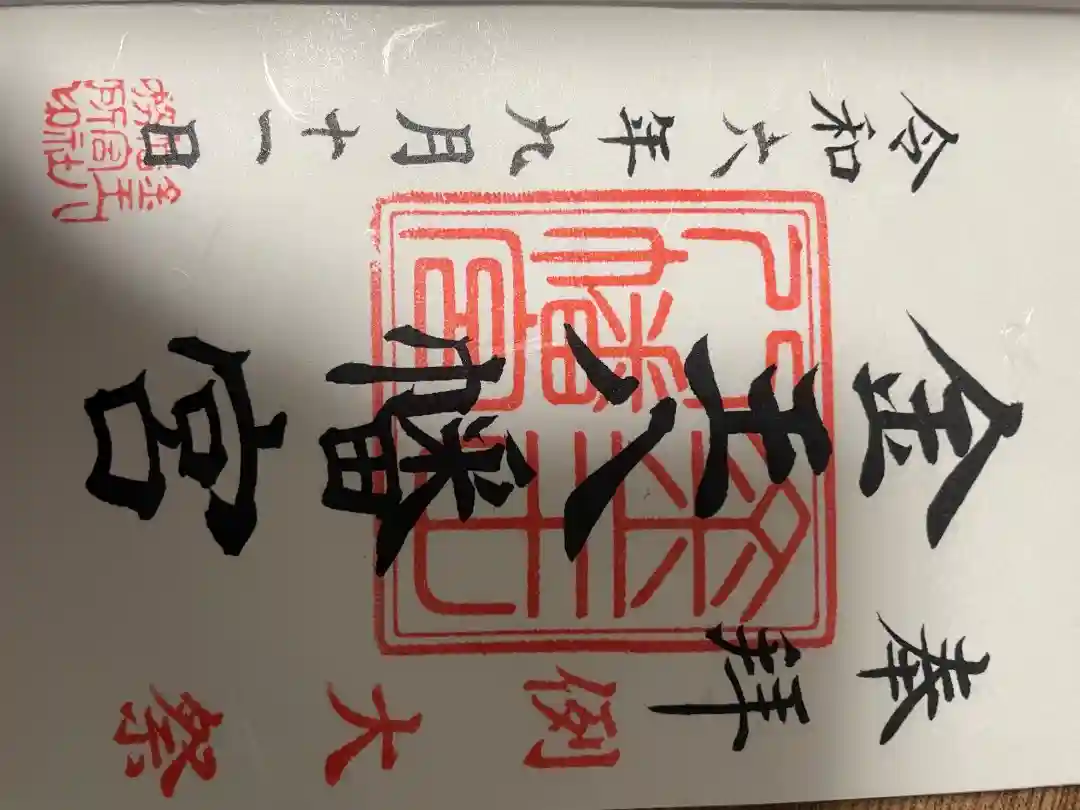 奉拝 例大祭
金王八幡宮
令和六年九月十一日
金王八
幡宮社
務所印